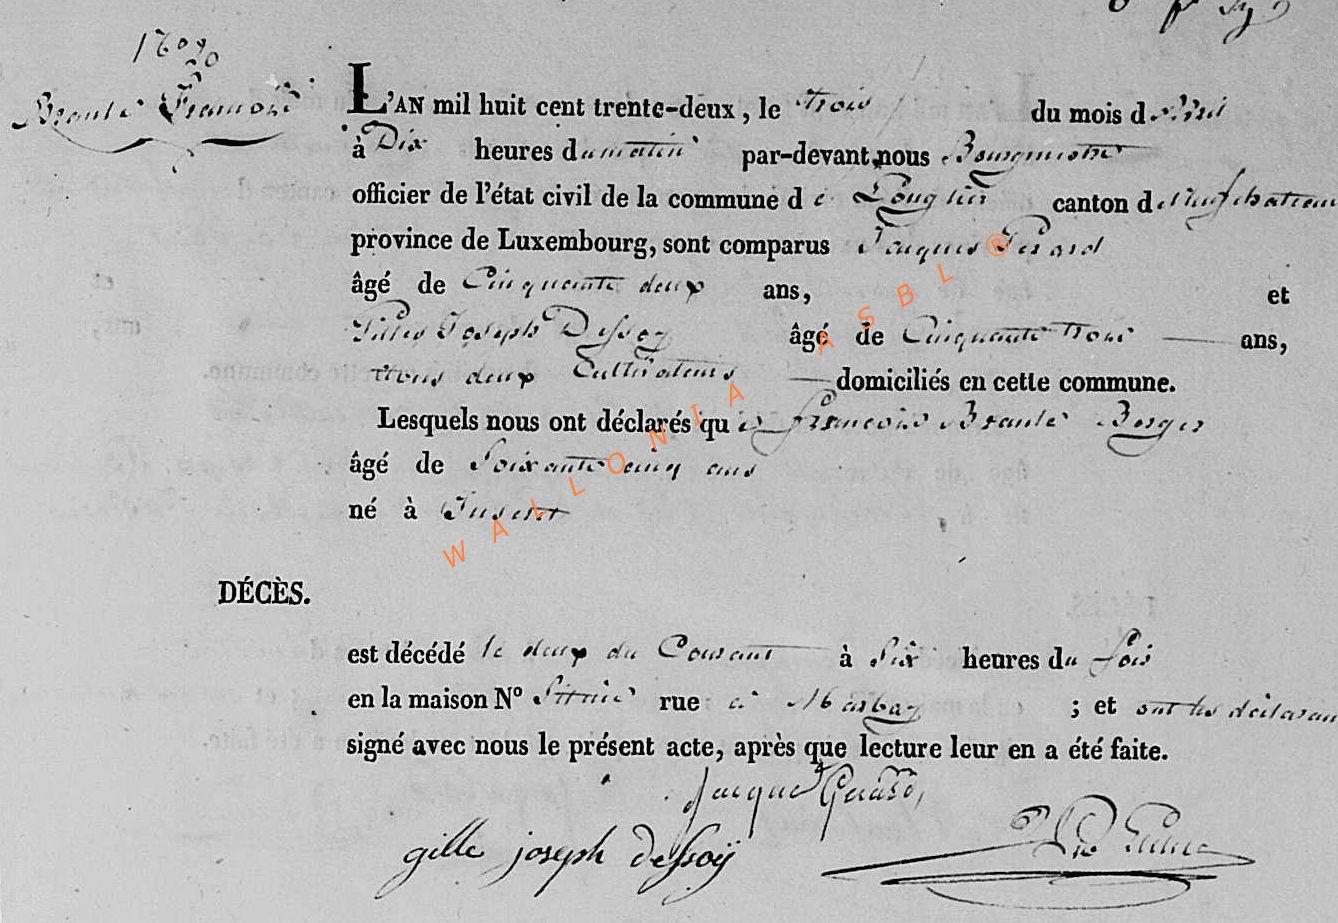 Braulé François
L'AN mil huit cent trente-deux, le trois du mois d'avril
à Dix heures du matin par-devant nous Bourgmestre
officier de l'état civil de la commune de Longlier canton de Neufchateau
province de Luxembourg, sont comparus Jacques Gerard
âgé de Cinquante deux ans, et
Gilles Joseph Dessoy âgé de Cinquante trois ans,
tous deux Cultivateurs domiciliés en cette commune.
Lesquels nous ont déclarés que François Braulé Berger
âgé de Soixante cinq ans
né à Juseret
DÉCÈS.
est décédé le deux du Courant à Six heures du Soir
en la maison N° Située rue à Marbay ; et ont les déclarans
signé avec nous le présent acte, après que lecture leur en a été faite.
Jacque Gerard
gille joseph dessoÿ
WALLONIA ASBL ®